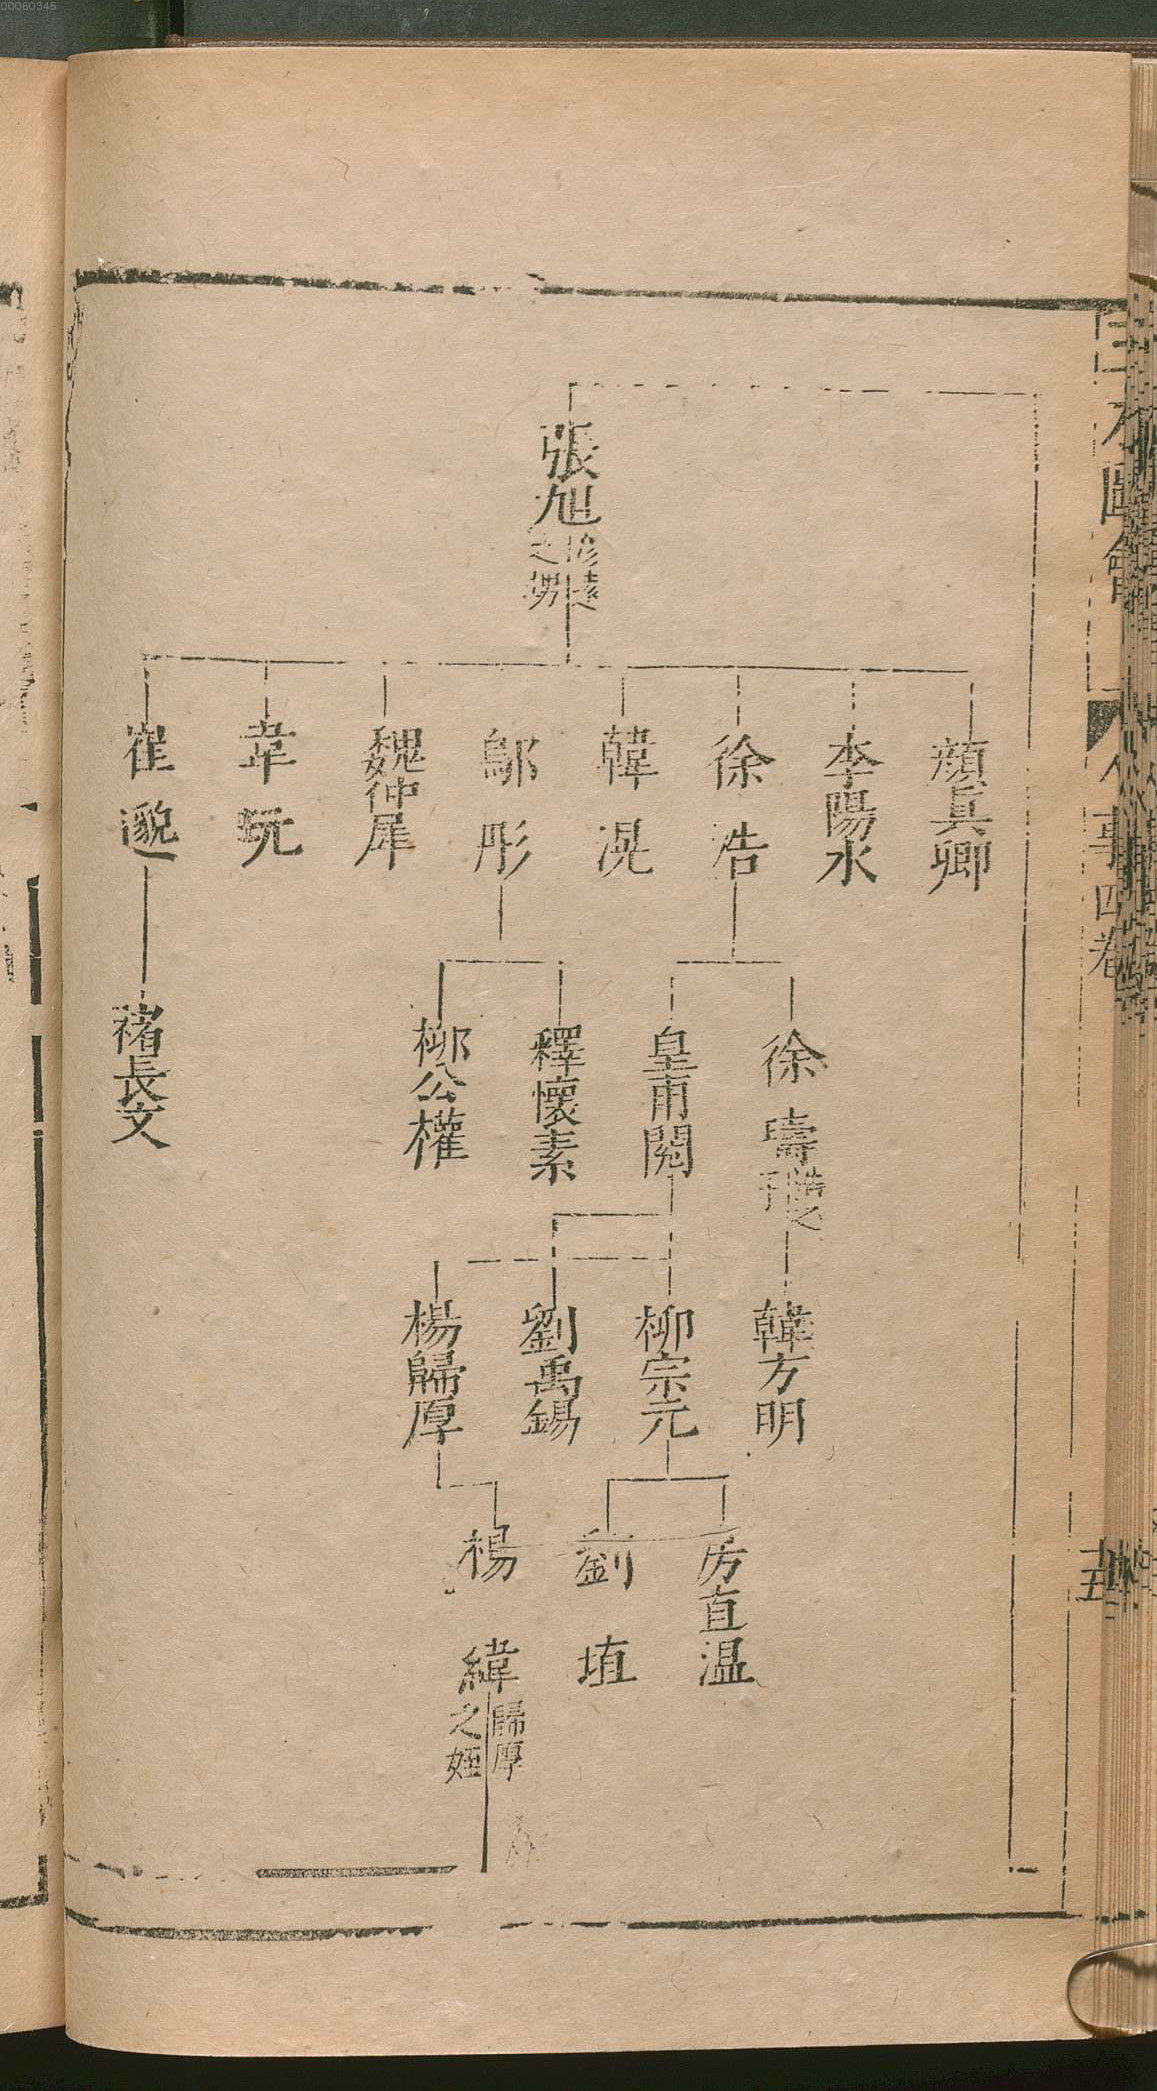 00060345
張旭彦遠之甥
顔真卿
李陽冰
徐浩
韓滉
鄔彤
魏仲犀
韋玩
崔邈
徐璹浩之子
皇甫閱
釋懷素
柳公權
褚長文
韓方明
柳宗元
劉禹錫
楊歸厚
房直温
劉埴
楊緯歸厚之姪
三才圖會
人事四卷